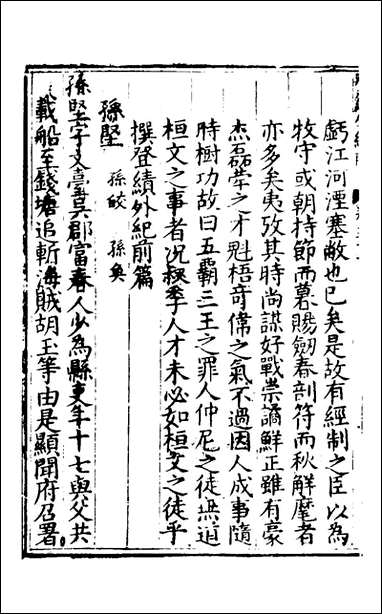 虧江河湮塞敝也已矣是故有經制之臣以為
牧守或朝持節而暮賜劔春剖符而秋解麾者
亦多矣夷攷其時尚謀好戰崇譎鮮正雖有豪
杰磊犖之才魁梧奇偉之氣不過因人成事隨
時樹功故曰五霸三王之罪人仲尼之徒無道
桓文之事者况叔季人才未必如桓文之徒乎
撰登績外紀前篇
孫堅 孫皎 孫奐
孫堅字文臺吳郡富春人少為縣吏年十七與父共
載船至錢塘追斬海賊胡玉等由是顯聞府召署